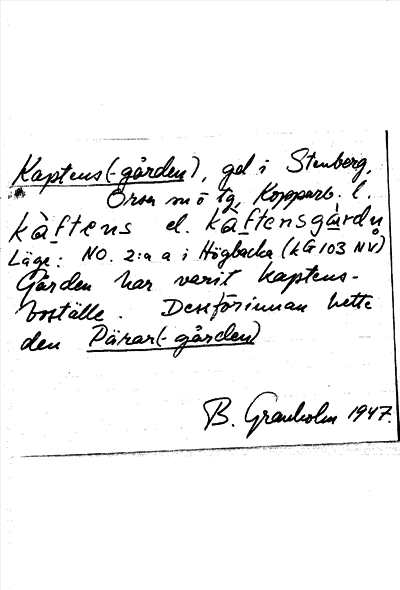 Kaptens(-gården), gd i Stenberg,
Orsa sn ö tg, Kopparb. l.
kàftens el. kàftensgårdn̥
Läge: NO. 2:a a i Högbacka (kG 103 NV)
Gården har varit kaptens-
boställe. Dessförinnan hette
den Pärar(-gården)
B. Granholm 1947.